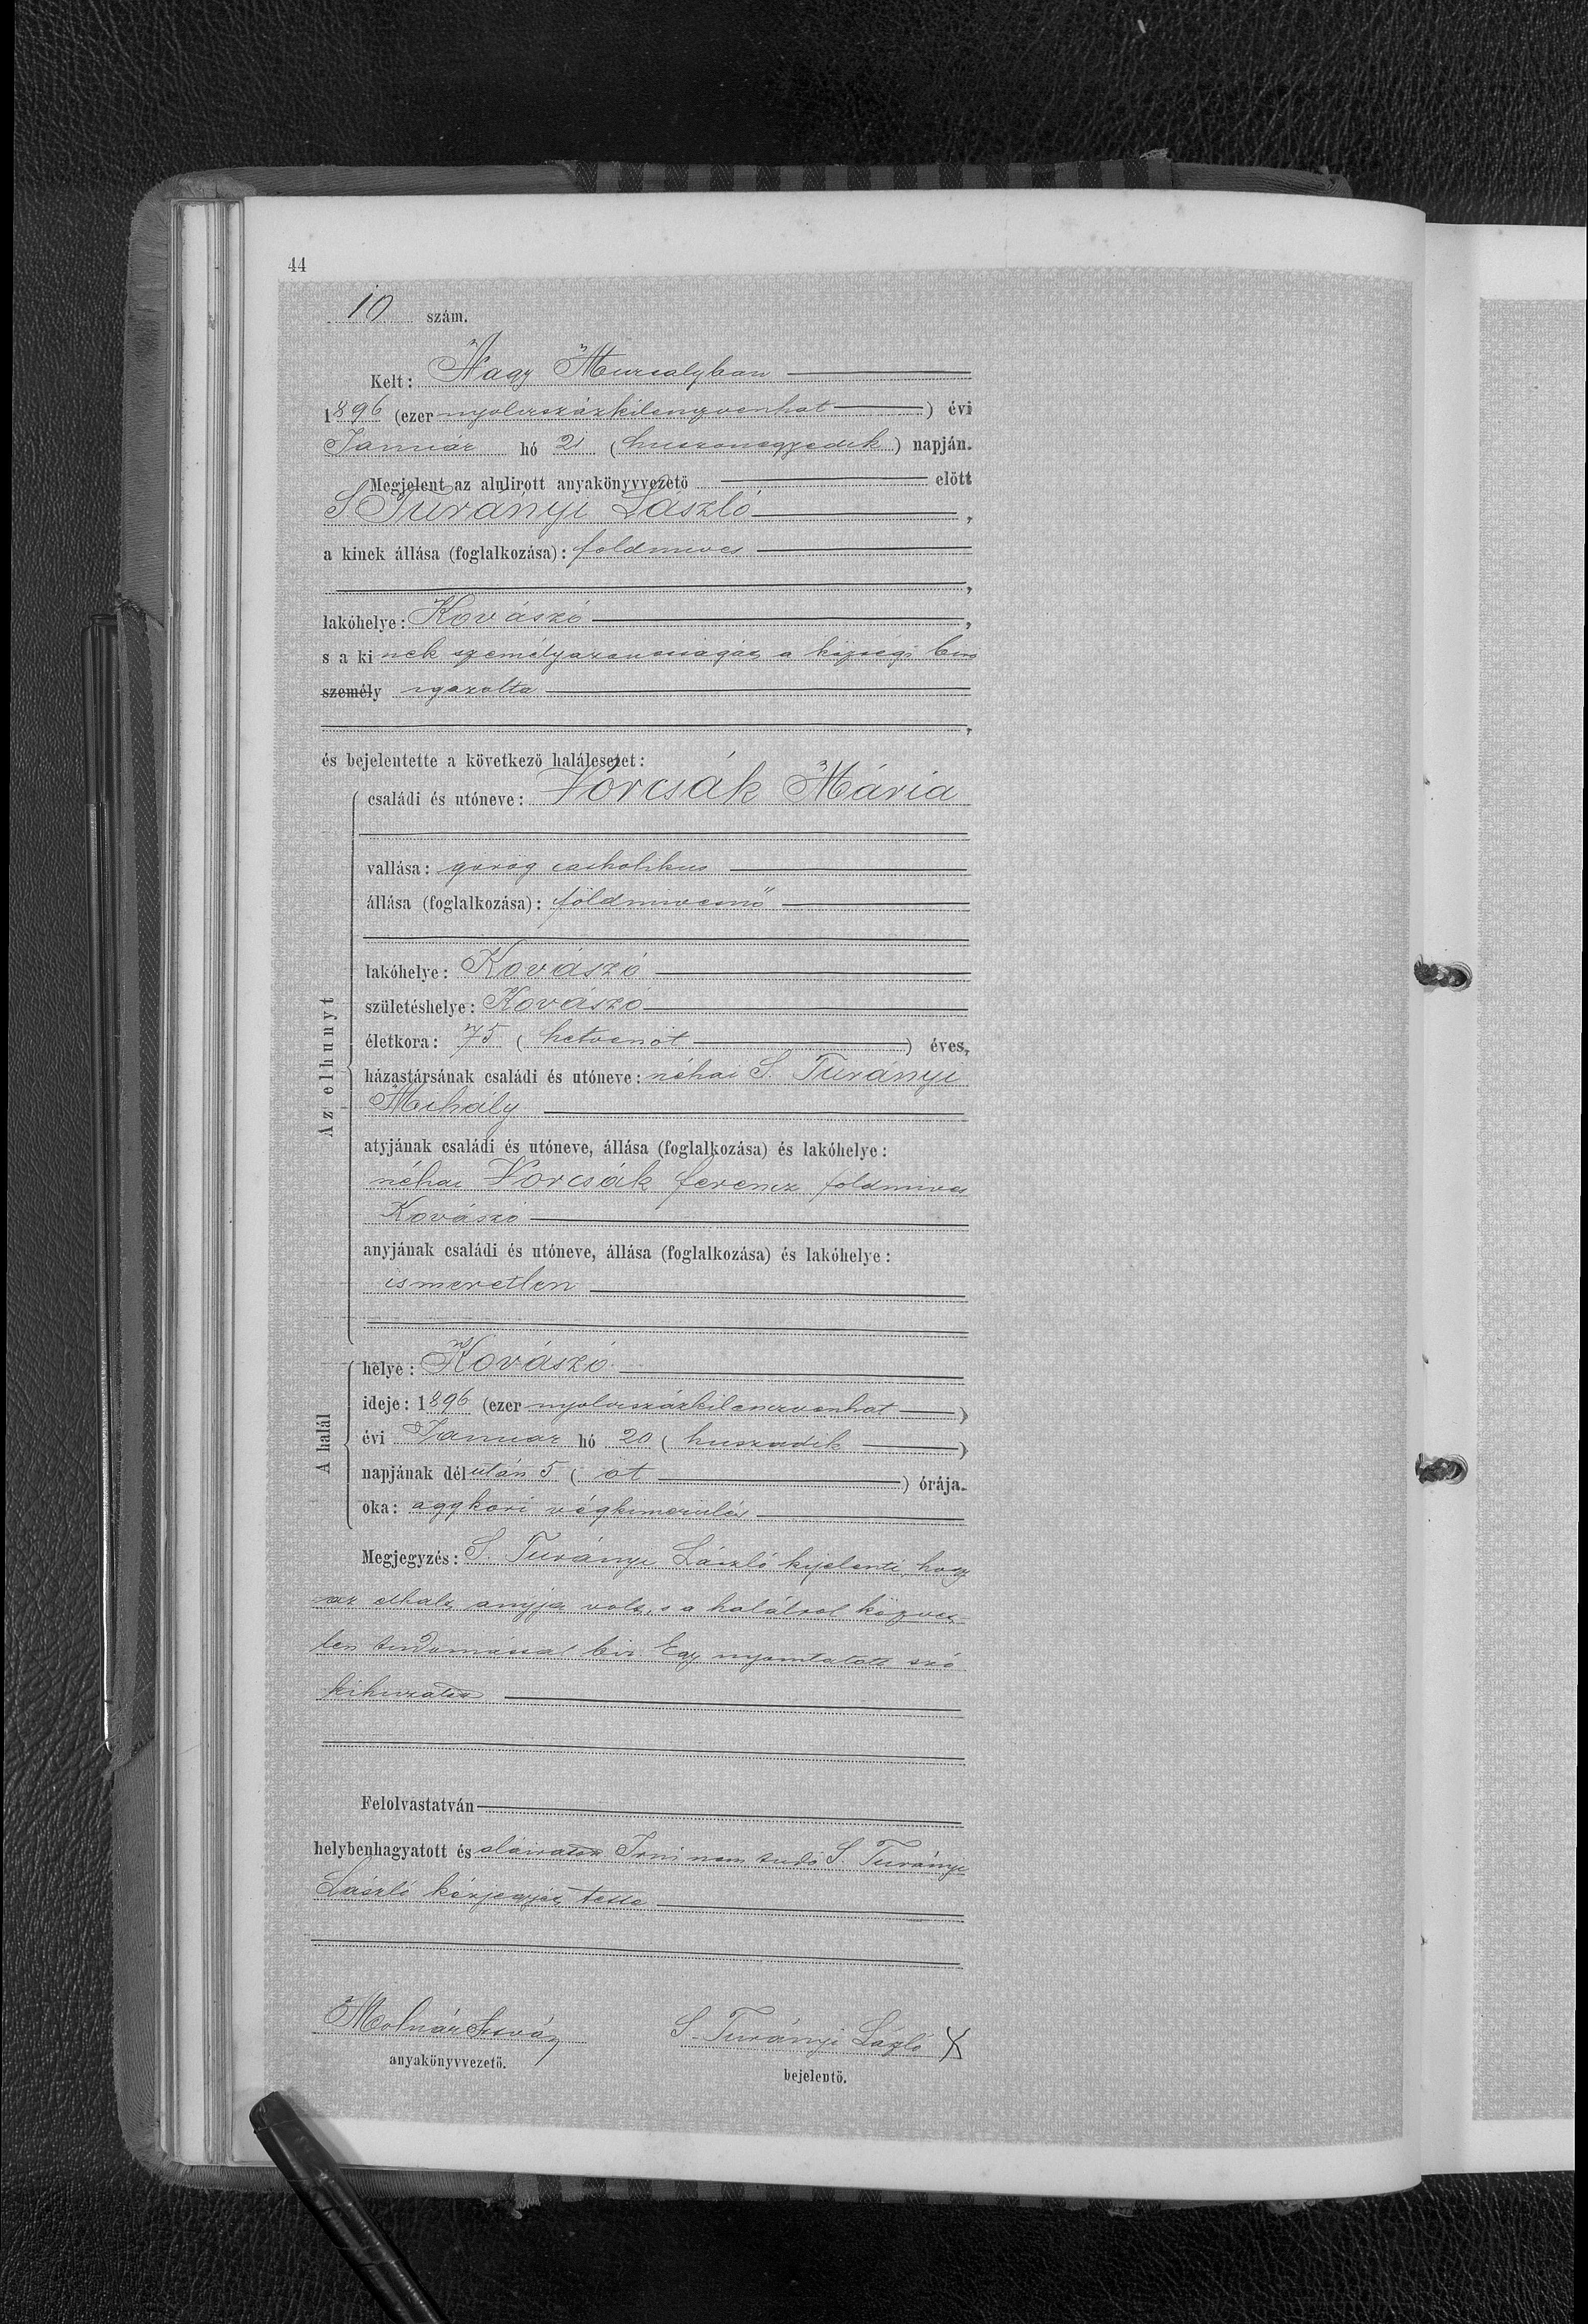 44
10 szám.
Kelt: Nagy Muzsalyban
1896 (ezer nyolczszázkilenczvenhat) évi
Január hó 21 (huszonegyedik) napján.
Megjelent az alulirott anyakönyvvezető előtt
S Turányi László,
a kinek állása (foglalkozása): foldmives
,
lakóhelye: Kovászó,
s a kinek személyazonosságát a községi
személy igazolta
,
és bejelentette a következő halálesetet:
Az elhunyt
családi és utóneve: Vorcsák Mária
vallása: görög catholikus
állása (foglalkozása): földmivesnő
lakóhelye: Kovászó
születéshelye: Kovászó
életkora: 75 (hetvenöt) éves,
házastársának családi és utóneve: néhai S. Turányi
Mihály
atyjának családi és utóneve, állása (foglalkozása) és lakóhelye:
néhai Vorcsák ferencz foldmives
Kovászó
anyjának családi és utóneve, állása (foglalkozása) és lakóhelye:
ismeretlen
A halál
helye: Kovászó
ideje: 1896 (ezer nyolczszázkilenczvenhat)
évi Januar hó 20 (huszadik)
napjának délután 5 (öt) órája.
oka: aggkori végkimerülés
Megjegyzés: S. Turányi László kijelenti, hogy
az elhalt anyja volt, s a halálrol közvet-
len tudomással bir. Egy nyomtatott szó
kihuzatott
Felolvastatván
helybenhagyatott és aláiratott Irni nem tudó S. Turányi
László kézjegyét tette
Molnár István
anyakönyvvezető.
S. Turányi László X
bejelentő.